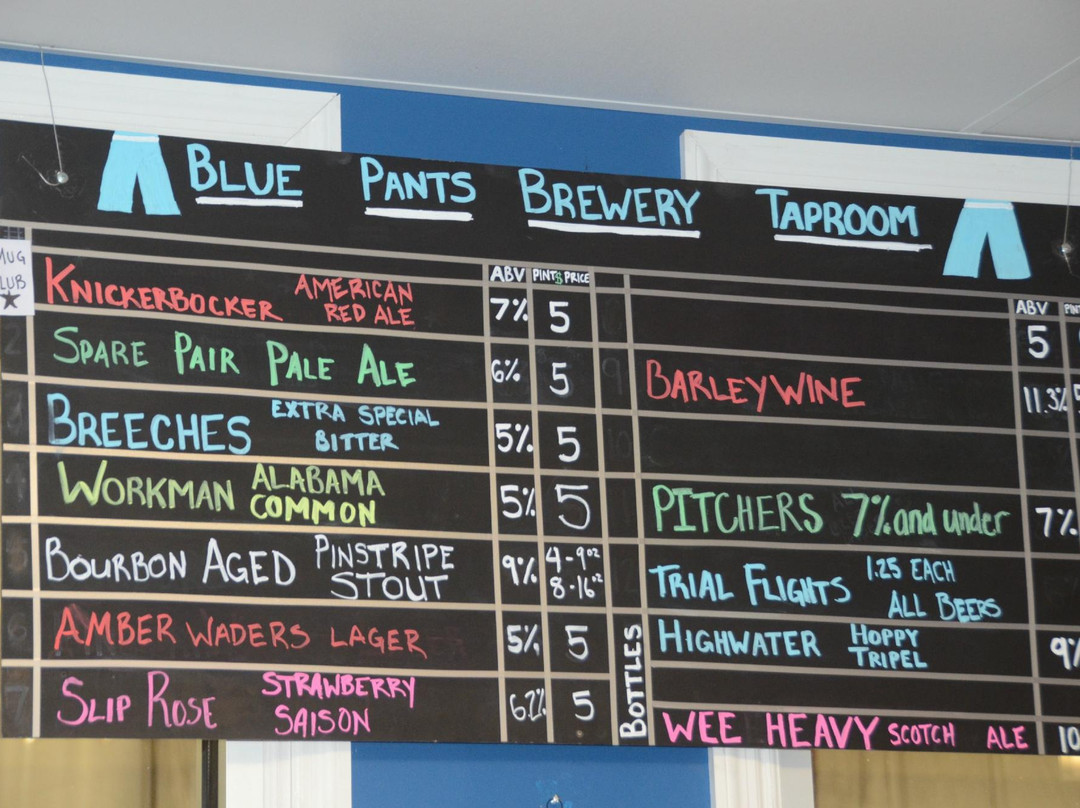 BLUE PANTS BREWERY TAPROOM
MUG
ABV PINT$ PRICE
KNICKERBOCKER AMERICAN RED ALE 7% 5
SPARE PAIR PALE ALE 6% 5
BREECHES EXTRA SPECIAL BITTER 5% 5
WORKMAN ALABAMA COMMON 5% 5
BOURBON AGED PINSTRIPE STOUT 9% 4-9oz 8-16oz
AMBER WADERS LAGER 5% 5
SLIP ROSE STRAWBERRY SAISON 6.2% 5
ABV
5
BARLEYWINE 11.3%
PITCHERS 7% and under 7%
TRIAL FLIGHTS 1.25 EACH ALL BEERS
BOTTLES
HIGHWATER HOPPY TRIPEL 9%
WEE HEAVY SCOTCH ALE 10